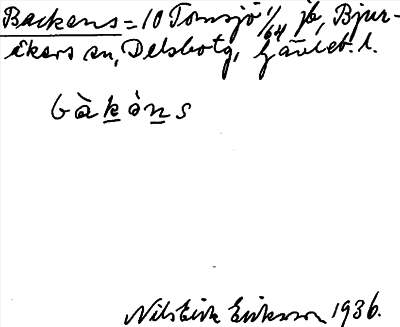 Backens = 10 Tomsjö 1/64 jb, Bjur-
åkers sn, Delsbotg, Gävleb. l.
bàkàns
Nils Eirik Eriksson 1936.